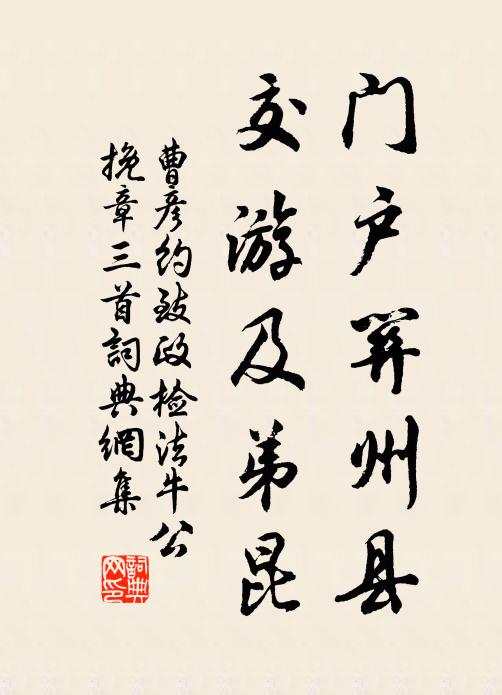 门户羿州县
交游及弟昆
曹彦约致政检法牛公
挽章三首词典網集
詞典
网印